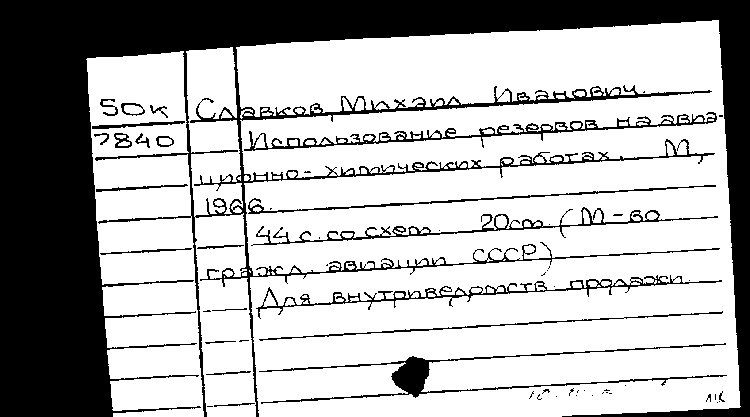 50к Славков, Михаил Иванович.
2840 Использование резервов на авиа-
ционно-химических работах. М.,
1966.
44 с. со схем. 20см (М-во
гражд. авиации СССР)
Для внутриведомств. продажи